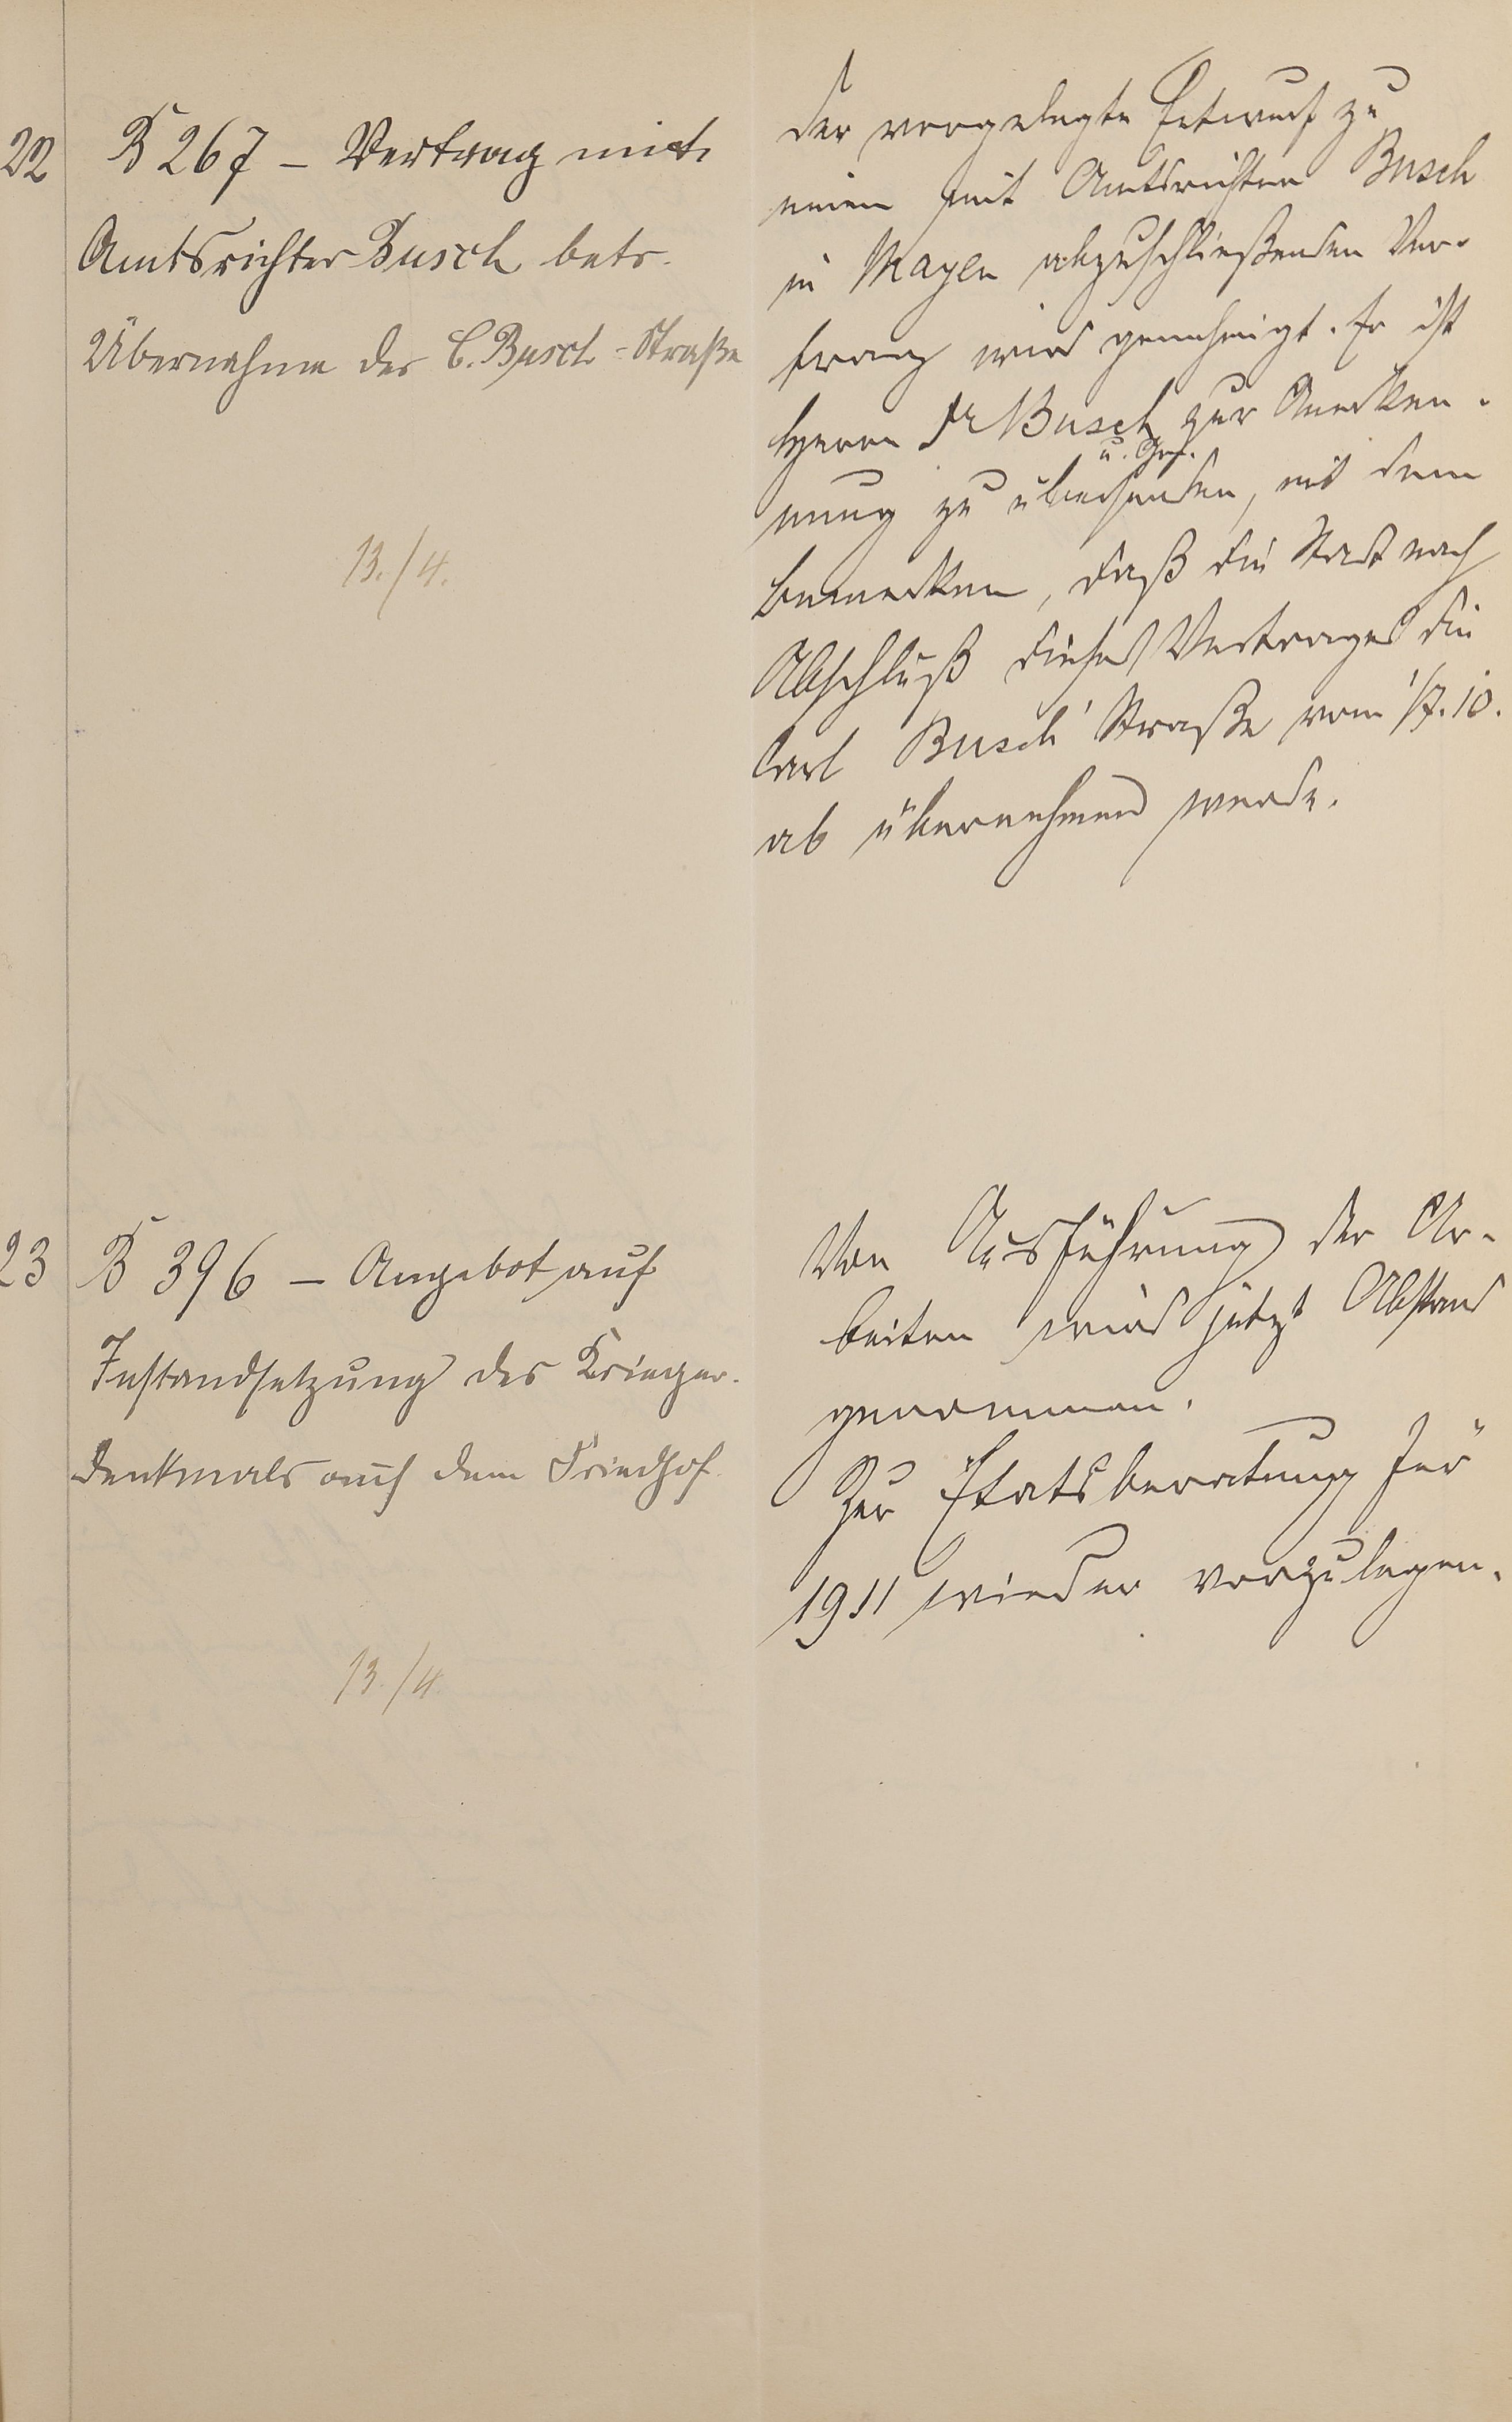 22
B 267 – Vertrag mit
Amtsrichter Busch betr.
Übernahme der C. Busch-Straße
13./4.
Der vorgelegte Entwurf zu
einem mit Amtsrichter Busch
in Mayen abzuschließenden Ver-
trag wird genehmigt. Er ist
Herrn Dr Busch zur Anerken-
nung zu übersenden, mit dem
Bemerken, daß die Stadt nach
Abschluß dieses Vertrages die
Carl Busch Straße vom 1/7.10.
ab übernehmen werde.
23
B 396 – Angebot auf
Instandsetzung des Krieger-
denkmals auf dem Friedhof
13./4.
Von Ausführung der Ar-
beiten wird jetzt Abstand
genommen.
Zur Etatsberatung für
1911 wieder vorzulegen.